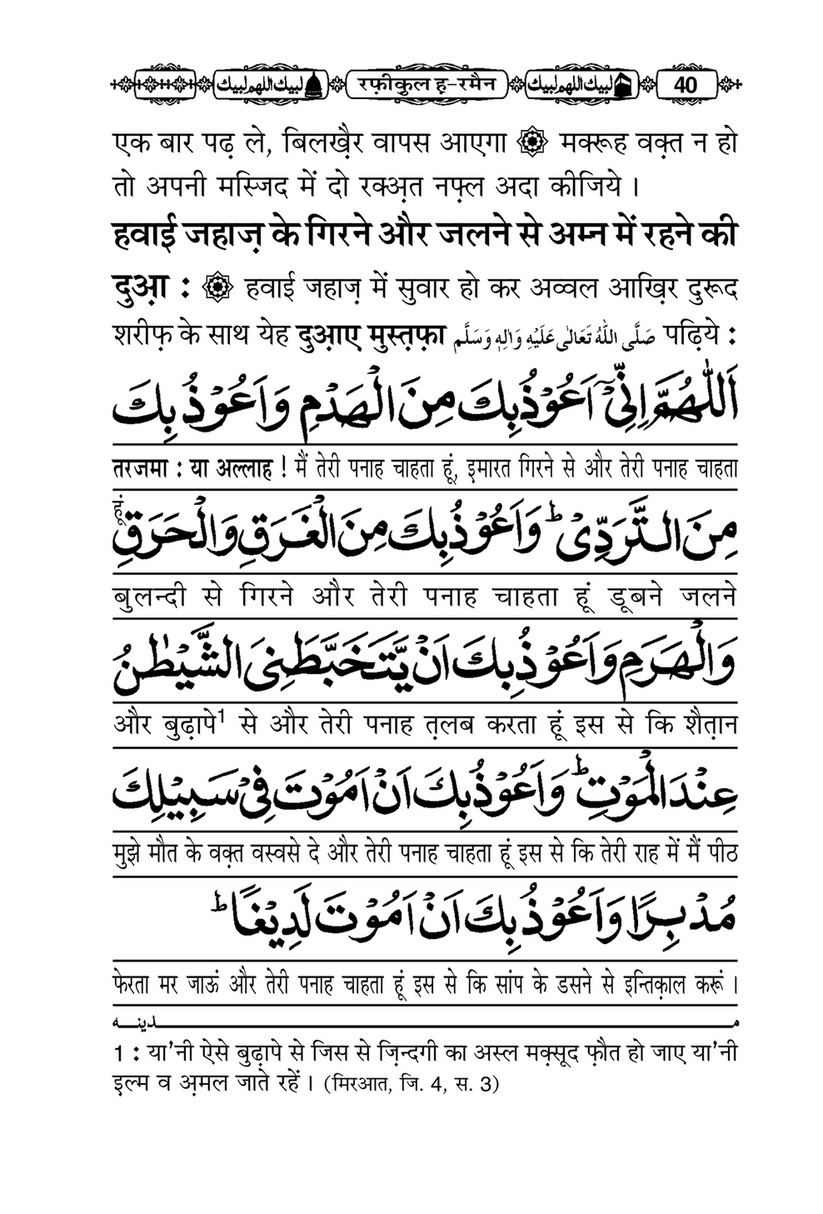 لبيك اللهم لبيك رफ़ीकुल ह-रमैन لبيك اللهم لبيك 40
एक बार पढ़ ले, बिलख़ैर वापस आएगा ۞ मक्रूह वक़्त न हो
तो अपनी मस्जिद में दो रक्अ़त नफ़्ल अदा कीजिये ।
हवाई जहाज़ के गिरने और जलने से अम्न में रहने की
दुआ़ : ۞ हवाई जहाज़ में सुवार हो कर अव्वल आख़िर दुरूद
शरीफ़ के साथ येह दुआ़ए मुस्त़फ़ा صَلَّى اللهُ تَعَالٰى عَلَيْهِ وَاٰلِهٖ وَسَلَّم पढ़िये :
اَللّٰهُمَّ اِنِّیْۤ اَعُوْذُ بِكَ مِنَ الْهَدْمِ وَاَعُوْذُ بِكَ
तरजमा : या अल्लाह ! मैं तेरी पनाह चाहता हूं, इमारत गिरने से और तेरी पनाह चाहता हूं
مِنَ التَّرَدِّیْ ؕ وَاَعُوْذُ بِكَ مِنَ الْغَرَقِ وَالْحَرَقِ
बुलन्दी से गिरने और तेरी पनाह चाहता हूं डूबने जलने
وَالْهَرَمِ وَاَعُوْذُ بِكَ اَنْ یَّتَخَبَّطَنِیَ الشَّیْطٰنُ
और बुढ़ापे¹ से और तेरी पनाह त़लब करता हूं इस से कि शैत़ान
عِنْدَ الْمَوْتِ ؕ وَاَعُوْذُ بِكَ اَنْ اَمُوْتَ فِیْ سَبِیْلِكَ
मुझे मौत के वक़्त वस्वसे दे और तेरी पनाह चाहता हूं इस से कि तेरी राह में मैं पीठ
مُدْبِرًا وَاَعُوْذُ بِكَ اَنْ اَمُوْتَ لَدِیْغًا ؕ
फेरता मर जाऊं और तेरी पनाह चाहता हूं इस से कि सांप के डसने से इन्तिक़ाल करूं ।
مـدينه
1 : या'नी ऐसे बुढ़ापे से जिस से ज़िन्दगी का अस्ल मक़्सूद फ़ौत हो जाए या'नी
इल्म व अ़मल जाते रहें । (मिरआत, जि. 4, स. 3)